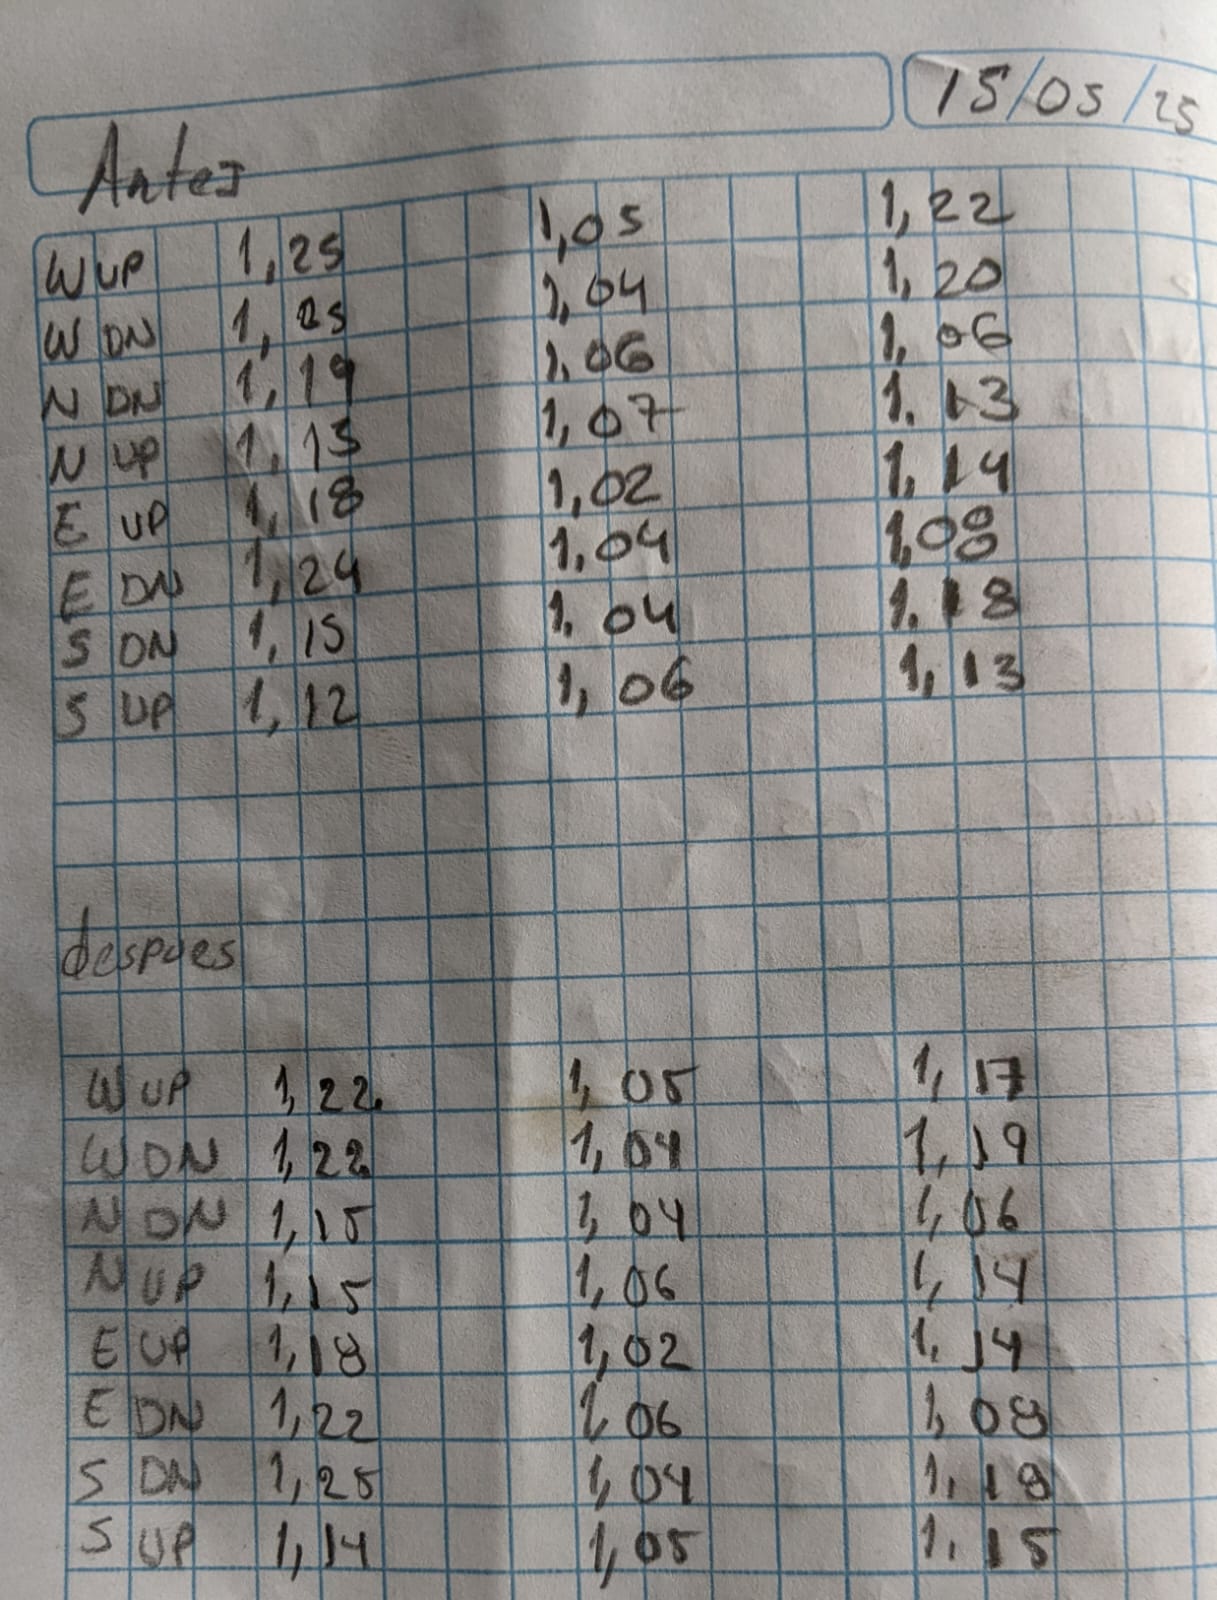 15/05/25
Antes
W UP 1,25 1,05 1,22
W DN 1,25 1,04 1,20
N DN 1,19 1,06 1,06
N UP 1,13 1,07 1.13
E UP 1,18 1,02 1,14
E DN 1,24 1,04 1,08
S DN 1,15 1,04 1,18
S UP 1,12 1,06 1,13
despues
W UP 1,22 1,05 1,17
W DN 1,22 1,04 1,19
N DN 1,15 1,04 1,06
N UP 1,15 1,06 1,14
E UP 1,18 1,02 1,14
E DN 1,22 1,06 1,08
S DN 1,25 1,04 1,18
S UP 1,14 1,05 1,15